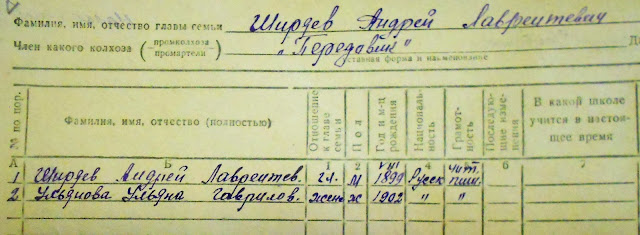 Фамилия, имя, отчество главы семьи Ширдев Андрей Лаврентевич
Член какого колхоза (промколхоза промартели) „Передовик"
уставная форма и наименование
№ по пор. Фамилия, имя, отчество (полностью) Отношение к главе семьи Пол Год и м-ц рождения Националь- ность Грамот- ность Последую- щие изме- нения В какой школе учится в настоя- щее время
А Б 1 2 3 4 5 6 7
1 Ширдев Андрей Лаврентев. гл. М VIII 1899 Русск чит. пиш.
2 Ульянова Ульяна Гаврилов. жена ж 1902 " "